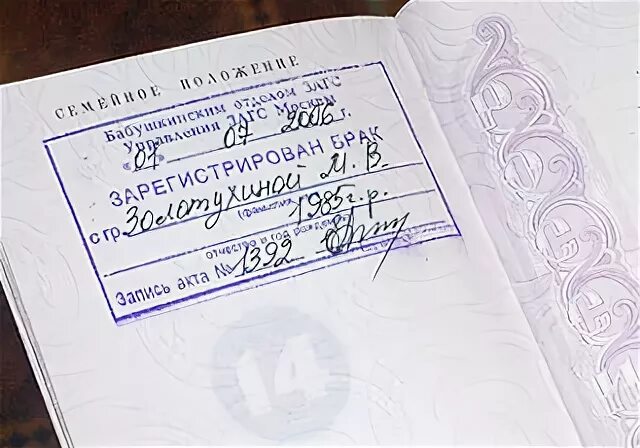 СЕМЕЙНОЕ ПОЛОЖЕНИЕ
Бабушкинским отделом ЗАГС
Управления ЗАГС Москвы
«07» 07 2006 г.
ЗАРЕГИСТРИРОВАН БРАК
с гр. Золотухиной М. В.
(фамилия, 1985 г. р.
отчество и год рождения)
Запись акта № 1392
14